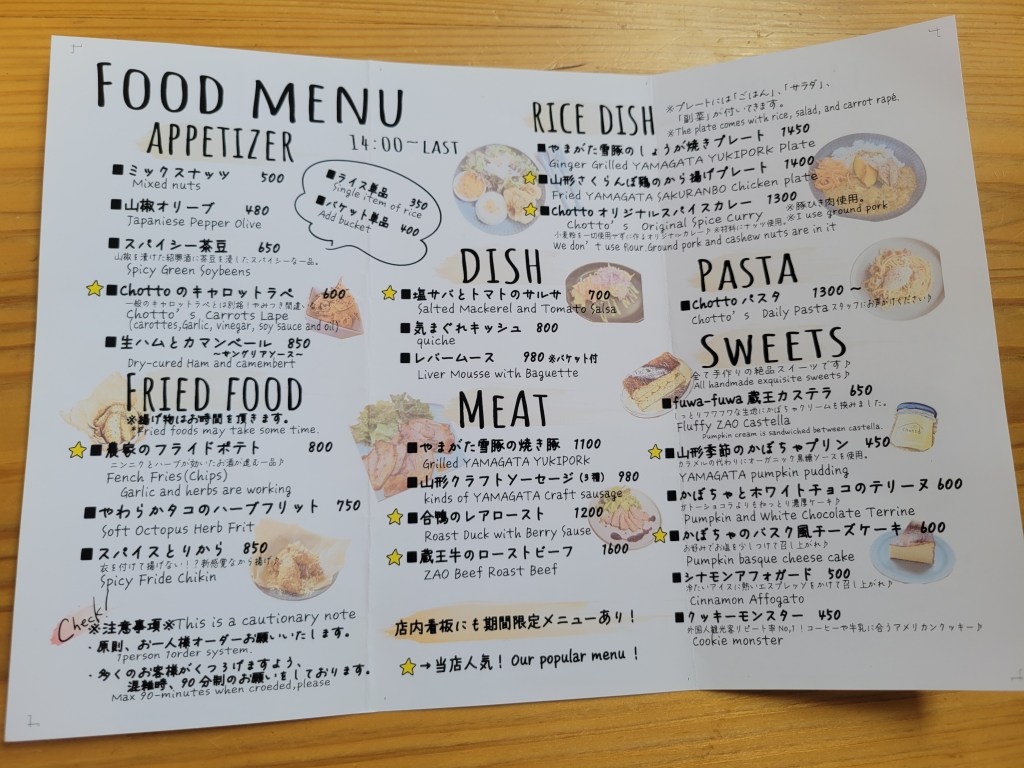 FOOD MENU
APPETIZER
14:00~LAST
■ミックスナッツ 500
Mixed nuts
■山椒オリーブ 480
Japaniese Pepper Olive
■スパイシー茶豆 650
山椒を漬けた紹興酒に茶豆を浸したスパイシーな一品。
Spicy Green Soybeens
■Chottoのキャロットラペ 600
一般のキャロットラペとは別格!やみつき間違いなし!
Chotto's Carrots Lape
(carottes,Garlic, vinegar, soy sauce and oil)
■生ハムとカマンベール 850
~サングリアソース~
Dry-cured Ham and camembert
■ライス単品 350
Single item of rice
■バケット単品 400
Add bucket
FRIED FOOD
※揚げ物はお時間を頂きます。
*Fried foods may take some time.
■農家のフライドポテト 800
ニンニクとハーブが効いたお酒が進む一品♪
Fench Fries(Chips)
Garlic and herbs are working
■やわらかタコのハーブフリット 750
Soft Octopus Herb Frit
■スパイスとりから 850
衣を付けて揚げない!?新感覚なから揚げ♪
Spicy Fride Chikin
Check!
※注意事項※This is a cautionary note
・原則、お一人様オーダーお願いいたします。
1person 1order system.
・多くのお客様がくつろげますよう、
混雑時、90分制のお願いをしております。
Max 90-minutes when croeded,please
DISH
■塩サバとトマトのサルサ 700
Salted Mackerel and Tomato Salsa
■気まぐれキッシュ 800
quiche
■レバームース 980 ※バケット付
Liver Mousse with Baguette
MEAT
■やまがた雪豚の焼き豚 1100
Grilled YAMAGATA YUKIPORK
■山形クラフトソーセージ(3種) 980
kinds of YAMAGATA Craft sausage
■合鴨のレアロースト 1200
Roast Duck with Berry Sause
■蔵王牛のローストビーフ 1600
ZAO Beef Roast Beef
店内看板にも期間限定メニューあり!
→当店人気! Our popular menu !
RICE DISH
※プレートには「ごはん」、「サラダ」、
「副菜」が付いてきます。
※The plate comes with rice, salad, and carrot rapé.
■やまがた雪豚のしょうが焼きプレート 1450
Ginger Grilled YAMAGATA YUKIPORK Plate
■山形さくらんぼ鶏のから揚げプレート 1400
Fried YAMAGATA SAKURANBO Chicken plate
■Chottoオリジナルスパイスカレー 1300 ※豚ひき肉使用。
Chotto's Original Spice Curry ※I use ground pork
小麦粉を一切使用せずに作るオリジナルカレー♪※材料にナッツ使用。
We don't use flour.Ground pork and cashew nuts are in it
PASTA
■Chottoパスタ 1300~
Chotto's Daily Pasta スタッフにお声がけください♪
SWEETS
全て手作りの絶品スイーツです♪
All handmade exquisite sweets♪
■fuwa-fuwa蔵王カステラ 650
しっとりフワフワな生地にかぼちゃクリームを挟みました。
Fluffy ZAO Castella
Pumpkin cream is sandwiched between castella.
■山形季節のかぼちゃプリン 450
カラメルの代わりにオーガニック黒糖ソースを使用。
YAMAGATA pumpkin pudding
■かぼちゃとホワイトチョコのテリーヌ 600
ガトーショコラよりもねっとり濃厚ケーキ♪
Pumpkin and White Chocolate Terrine
■かぼちゃのバスク風チーズケーキ 600
お好みでお塩を少しつけて召し上がれ♪
Pumpkin basque cheese cake
■シナモンアフォガード 500
冷たいアイスに熱いエスプレッソをかけて召し上がれ♪
Cinnamon Affogato
■クッキーモンスター 450
外国人観光客リピート率No,1!コーヒーや牛乳に合うアメリカンクッキー♪
Cookie monster